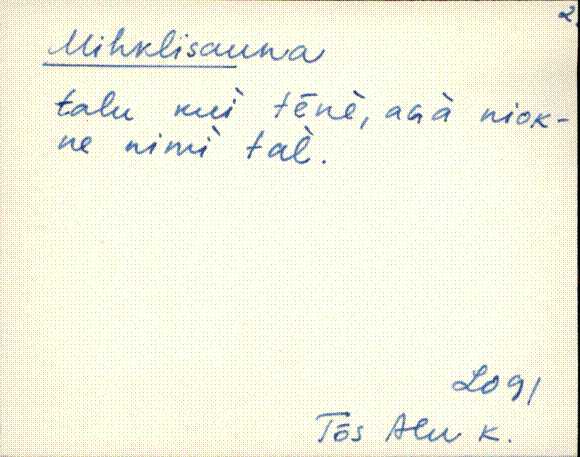 2.
Mihklisauna
talu kui̬ tēnè, agà niok-
ne nimì tal̀.
Tõs Alu k.